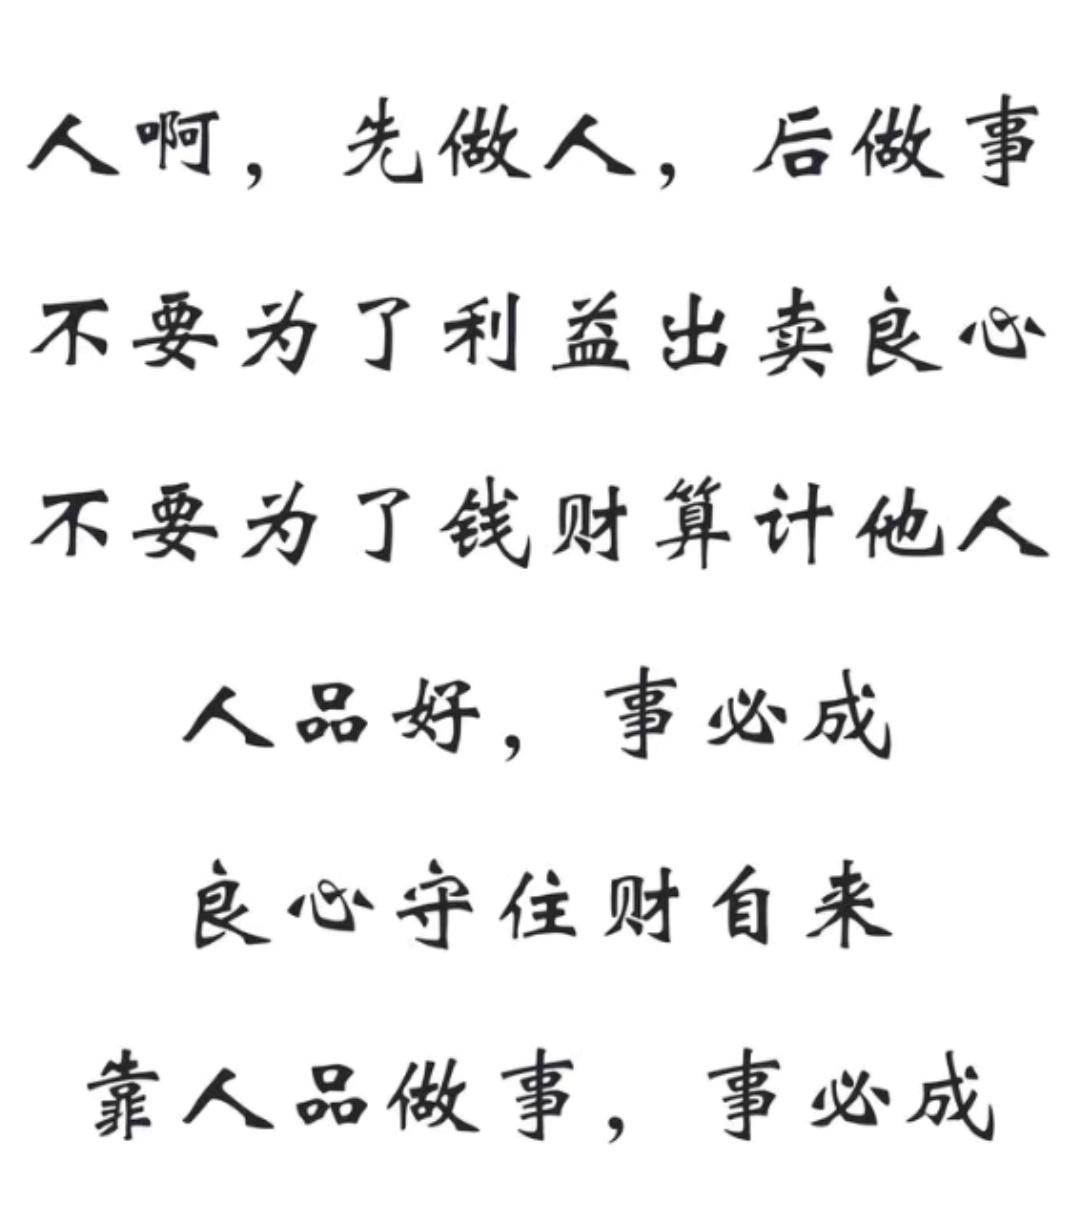 人啊，先做人，后做事
不要为了利益出卖良心
不要为了钱财算计他人
人品好，事必成
良心守住财自来
靠人品做事，事必成